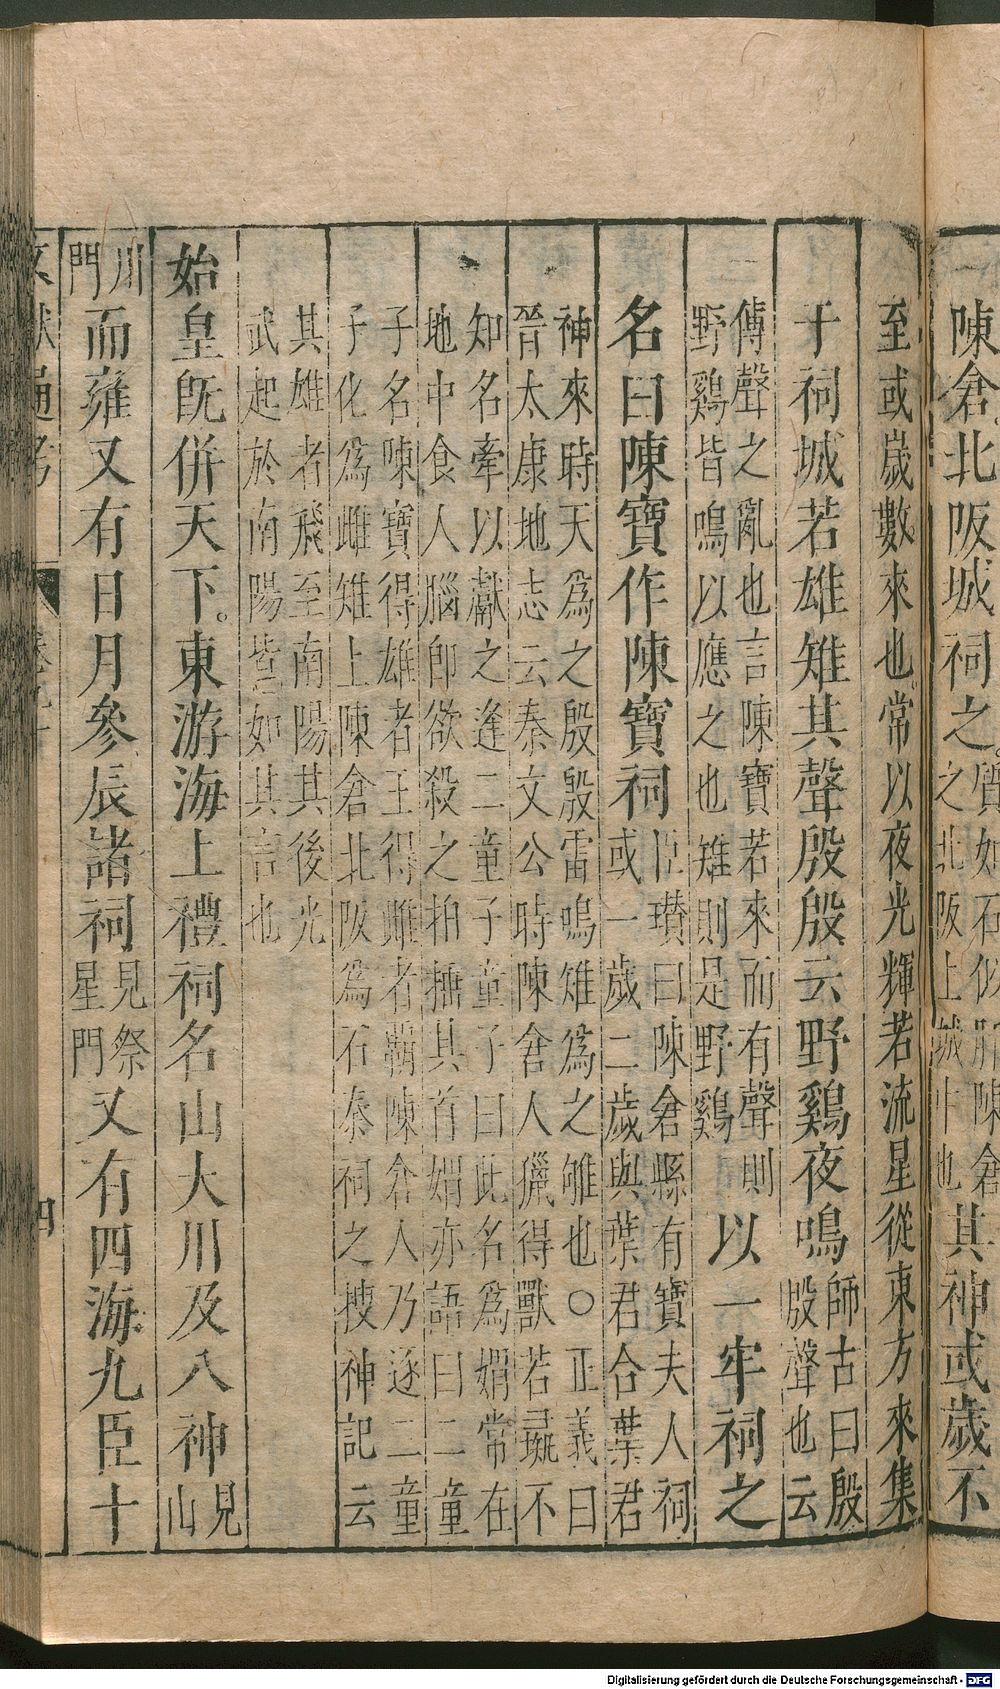 陳倉北阪城祠之質如石似肝陳倉之北阪上城中也其神或歲不
至或歲數來也常以夜光輝若流星從東方來集
于祠城若雄雉其聲殷殷云野鷄夜鳴師古曰殷殷聲也云
傳聲之亂也言陳寶若來而有聲則
野鷄皆鳴以應之也雉則是野鷄
以一牢祠之
名曰陳寶作陳寶祠臣瓚曰陳倉縣有寶夫人祠或一歲二歲與葉君合葉君
神來時天爲之殷殷雷鳴雉爲之雊也○正義曰
晉太康地志云秦文公時陳倉人獵得獸若彘不
知名牽以獻之逢二童子童子曰此名爲媦常在
地中食人腦卽欲殺之拍捶其首媦亦語曰二童
子名陳寶得雄者王得雌者霸陳倉人乃逐二童
子化爲雌雉上陳倉北阪爲石秦祠之搜神記云
其雄者飛至南陽其後光
武起於南陽皆如其言也
始皇旣併天下東游海上禮祠名山大川及八神見山
川門而雍又有日月參辰諸祠見祭星門又有四海九臣十
四
Digitalisierung gefördert durch die Deutsche Forschungsgemeinschaft - DFG